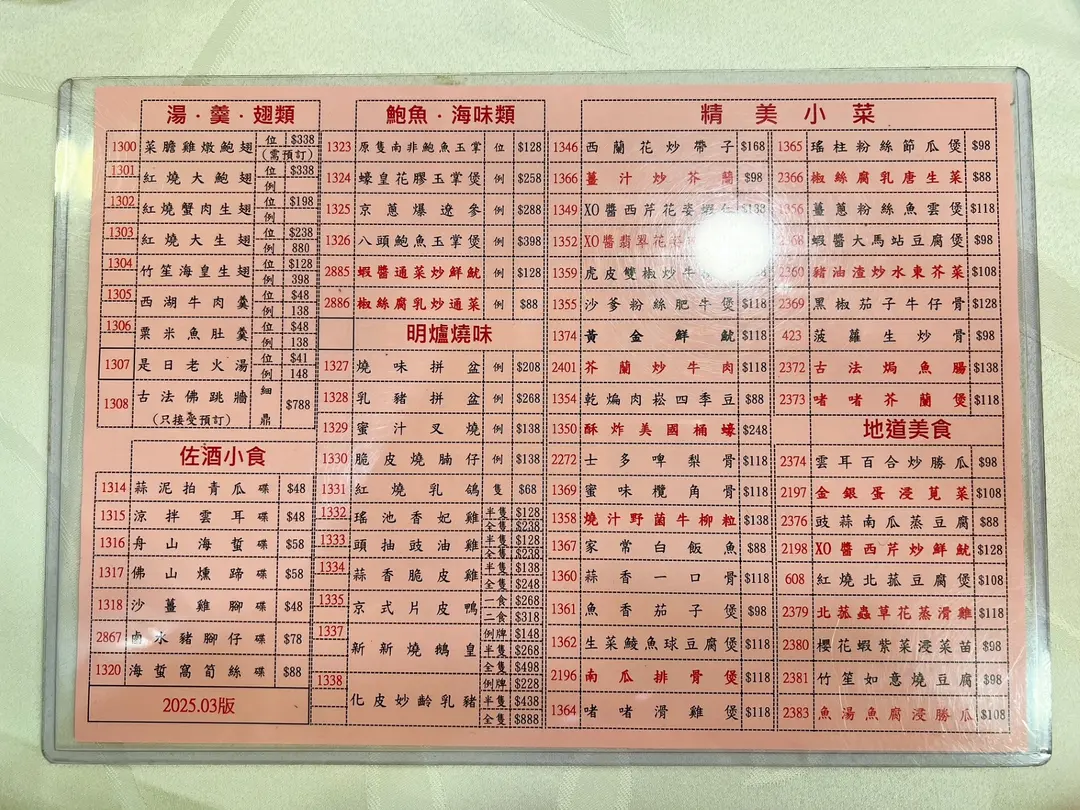 湯·羹·翅類
1300 菜膽雞燉鮑翅 位 $338
(需預訂)
1301 紅燒大鮑翅 位 $338
例
1302 紅燒蟹肉生翅 位 $198
例
1303 紅燒大生翅 位 $238
例 880
1304 竹笙海皇生翅 位 $128
例 398
1305 西湖牛肉羹 位 $48
例 138
1306 粟米魚肚羹 位 $48
例 138
1307 是日老火湯 位 $41
例 148
1308 古法佛跳牆 細鼎 $788
(只接受預訂)
佐酒小食
1314 蒜泥拍青瓜 碟 $48
1315 涼拌雲耳 碟 $48
1316 舟山海蜇 碟 $58
1317 佛山燻蹄 碟 $58
1318 沙薑雞腳 碟 $48
2867 鹵水豬腳仔 碟 $78
1320 海蜇窩筍絲 碟 $88
2025.03版
鮑魚·海味類
1323 原隻南非鮑魚玉掌 位 $128
1324 蠔皇花膠玉掌煲 例 $258
1325 京蔥爆遼參 例 $288
1326 八頭鮑魚玉掌煲 例 $398
2885 蝦醬通菜炒鮮魷 例 $128
2886 椒絲腐乳炒通菜 例 $88
明爐燒味
1327 燒味拼盆 例 $208
1328 乳豬拼盆 例 $268
1329 蜜汁叉燒 例 $138
1330 脆皮燒腩仔 例 $138
1331 紅燒乳鴿 隻 $68
1332 瑤池香妃雞 半隻 $128
全隻 $238
1333 頭抽豉油雞 半隻 $128
全隻 $238
1334 蒜香脆皮雞 半隻 $138
全隻 $248
1335 京式片皮鴨 一食 $268
二食 $318
1337 新新燒鵝皇 例牌 $148
半隻 $268
全隻 $498
1338 化皮妙齡乳豬 例牌 $228
半隻 $438
全隻 $888
精美小菜
1346 西蘭花炒帶子 $168
1366 薑汁炒芥蘭 $98
1349 XO醬西芹花姿蝦仁 $138
1352 XO醬翡翠花
1359 虎皮雙椒炒牛
1355 沙爹粉絲肥牛煲 $118
1374 黃金鮮魷 $118
2401 芥蘭炒牛肉 $118
1354 乾煸肉崧四季豆 $88
1350 酥炸美國桶蠔 $248
2272 士多啤梨骨 $118
1369 蜜味欖角骨 $118
1358 燒汁野菌牛柳粒 $138
1367 家常白飯魚 $88
1360 蒜香一口骨 $118
1361 魚香茄子煲 $98
1362 生菜鯪魚球豆腐煲 $118
2196 南瓜排骨煲 $118
1364 啫啫滑雞煲 $118
1365 瑤柱粉絲節瓜煲 $98
2366 椒絲腐乳唐生菜 $88
1356 薑蔥粉絲魚雲煲 $118
2368 蝦醬大馬站豆腐煲 $98
2360 豬油渣炒水東芥菜 $108
2369 黑椒茄子牛仔骨 $128
423 菠蘿生炒骨 $98
2372 古法焗魚腸 $138
2373 啫啫芥蘭煲 $118
地道美食
2374 雲耳百合炒勝瓜 $98
2197 金銀蛋浸莧菜 $108
2376 豉蒜南瓜蒸豆腐 $88
2198 XO醬西芹炒鮮魷 $128
608 紅燒北菰豆腐煲 $108
2379 北菰蟲草花蒸滑雞 $118
2380 櫻花蝦紫菜浸菜苗 $98
2381 竹笙如意燒豆腐 $98
2383 魚湯魚腐浸勝瓜 $108